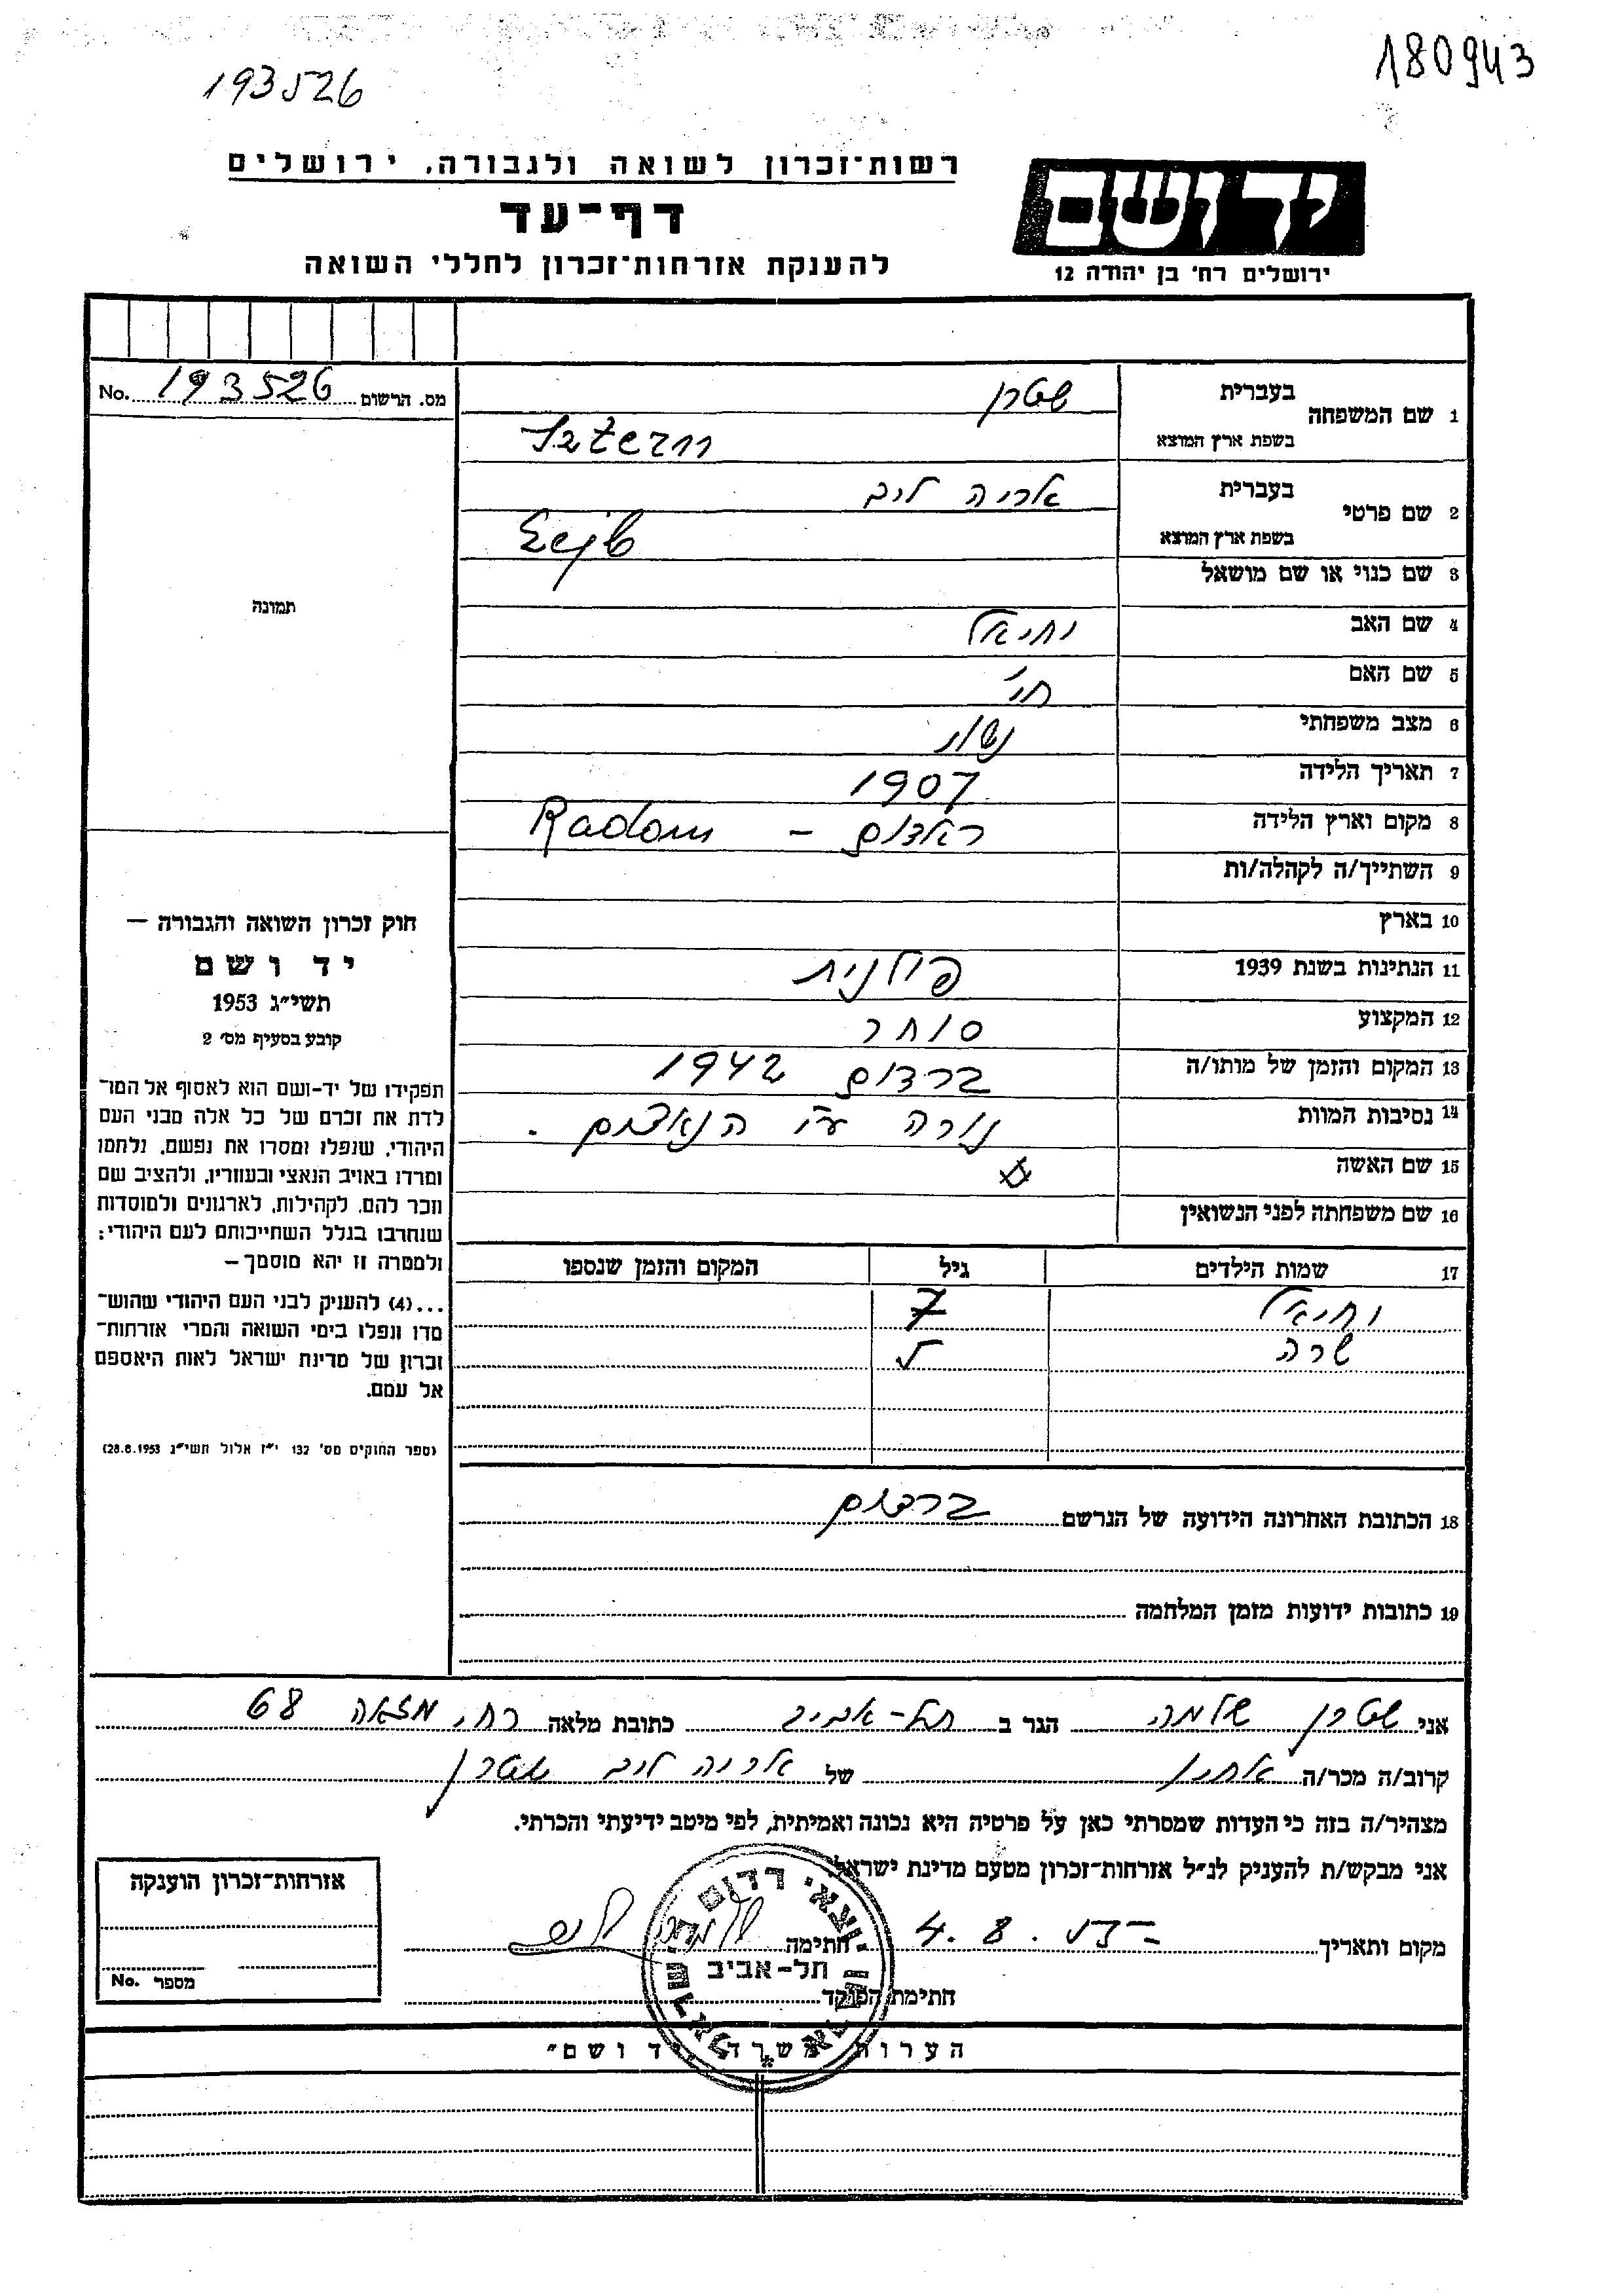 180943
193526
רשות־זכרון לשואה ולגבורה, ירושלים
דף־עד
להענקת אזרחות־זכרון לחללי השואה
יד ושם
ירושלים רח' בן יהודה 12
מס. הרשום 193526 No.
1 שם המשפחה
בעברית שטרן
בשפת ארץ המוצא Sztern
2 שם פרטי
בעברית אריה ליב
בשפת ארץ המוצא
3 שם כנוי או שם מושאל
4 שם האב יחיאל
5 שם האם חי'
6 מצב משפחתי נשוי
7 תאריך הלידה 1907
8 מקום וארץ הלידה ראדום - Radom
9 השתייך/ה לקהלה/ות
10 בארץ
11 הנתינות בשנת 1939 פולנית
12 המקצוע סוחר
13 המקום והזמן של מותו/ה ברדום 1942
14 נסיבות המוות נורה ע"י הנאצים .
15 שם האשה
16 שם משפחתה לפני הנשואין
17 שמות הילדים גיל המקום והזמן שנספו
יחיאל 7
שרה 5
18 הכתובת האחרונה הידועה של הנרשם ברדום
19 כתובות ידועות מזמן המלחמה
תמונה
חוק זכרון השואה והגבורה –
יד ושם
תשי"ג 1953
קובע בסעיף מס' 2
תפקידו של יד-ושם הוא לאסוף אל המו־
לדת את זכרם של כל אלה מבני העם
היהודי, שנפלו ומסרו את נפשם, נלחמו
ומרדו באויב הנאצי ובעוזריו, ולהציב שם
וזכר להם, לקהילות, לארגונים ולמוסדות
שנחרבו בגלל השתייכותם לעם היהודי;
ולמטרה זו יהא מוסמך –
...(4) להעניק לבני העם היהודי שהוש־
מדו ונפלו בימי השואה והמרי אזרחות־
זכרון של מדינת ישראל לאות היאספם
אל עמם.
(ספר החוקים מס' 132 י"ז אלול תשי"ג 28.8.1953)
אני שטרן שלמה הגר ב תל-אביב כתובת מלאה רח' מזאה 68
קרוב/ה מכר/ה אחיין של אריה ליב שטרן
מצהיר/ה בזה כי העדות שמסרתי כאן על פרטיה היא נכונה ואמיתית, לפי מיטב ידיעתי והכרתי.
אני מבקש/ת להעניק לנ"ל אזרחות־זכרון מטעם מדינת ישראל
מקום ותאריך 4.8. חתימה
חתימת הפוקד
יוצאי רדום
תל-אביב
אזרחות־זכרון הוענקה
מספר No.
הערות משרד "יד ושם"